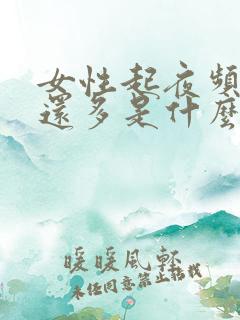 女性起夜頻
還多是什麼
暖暖風軒
未经同意禁止搭载